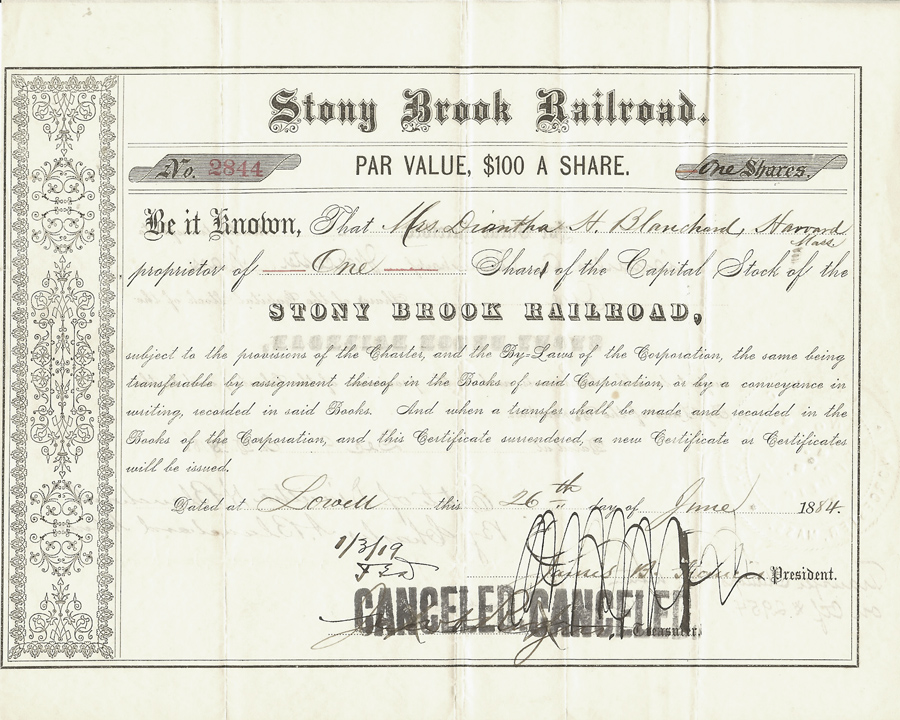 Stony Brook Railroad.
No. 2844 PAR VALUE, $100 A SHARE. One Shares.
Be it Known, That Mrs. Diantha H. Blanchard, Harvard
Mass
proprietor of One Shares of the Capital Stock of the
STONY BROOK RAILROAD,
subject to the provisions of the Charter, and the By-Laws of the Corporation, the same being
transferable by assignment thereof in the Books of said Corporation, or by a conveyance in
writing, recorded in said Books. And when a transfer shall be made and recorded in the
Books of the Corporation, and this Certificate surrendered, a new Certificate or Certificates
will be issued.
Dated at Lowell this 26th day of June 1884.
1/3/19
James B. President.
CANCELED. CANCELED
Treasurer.